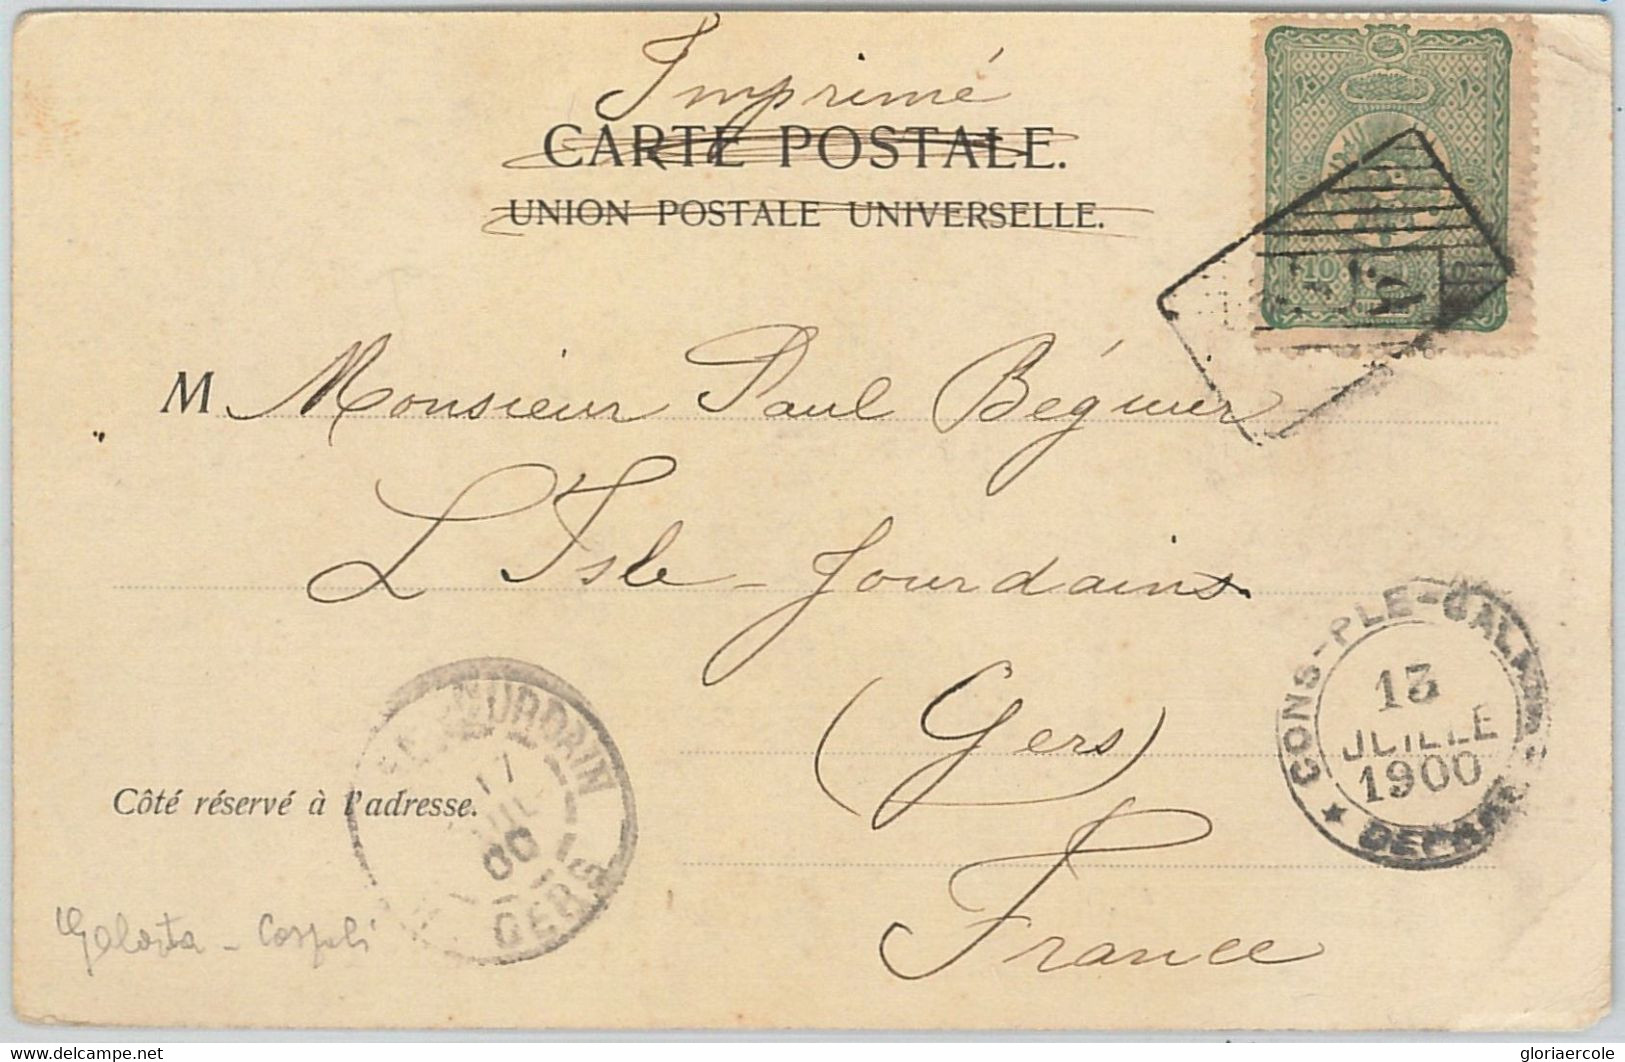 Imprimé
CARTE POSTALE.
UNION POSTALE UNIVERSELLE.
10
M Monsieur Paul Béguier
L'Isle-Jourdains
(Gers)
France
Côté réservé à l'adresse.
CONS-PLE-GALATA
13
JUILLE
1900
DEPART
JOURDAIN
17
JUIL
00
GERS
Galata - Cospoli
www.delcampe.net
gloriaercole